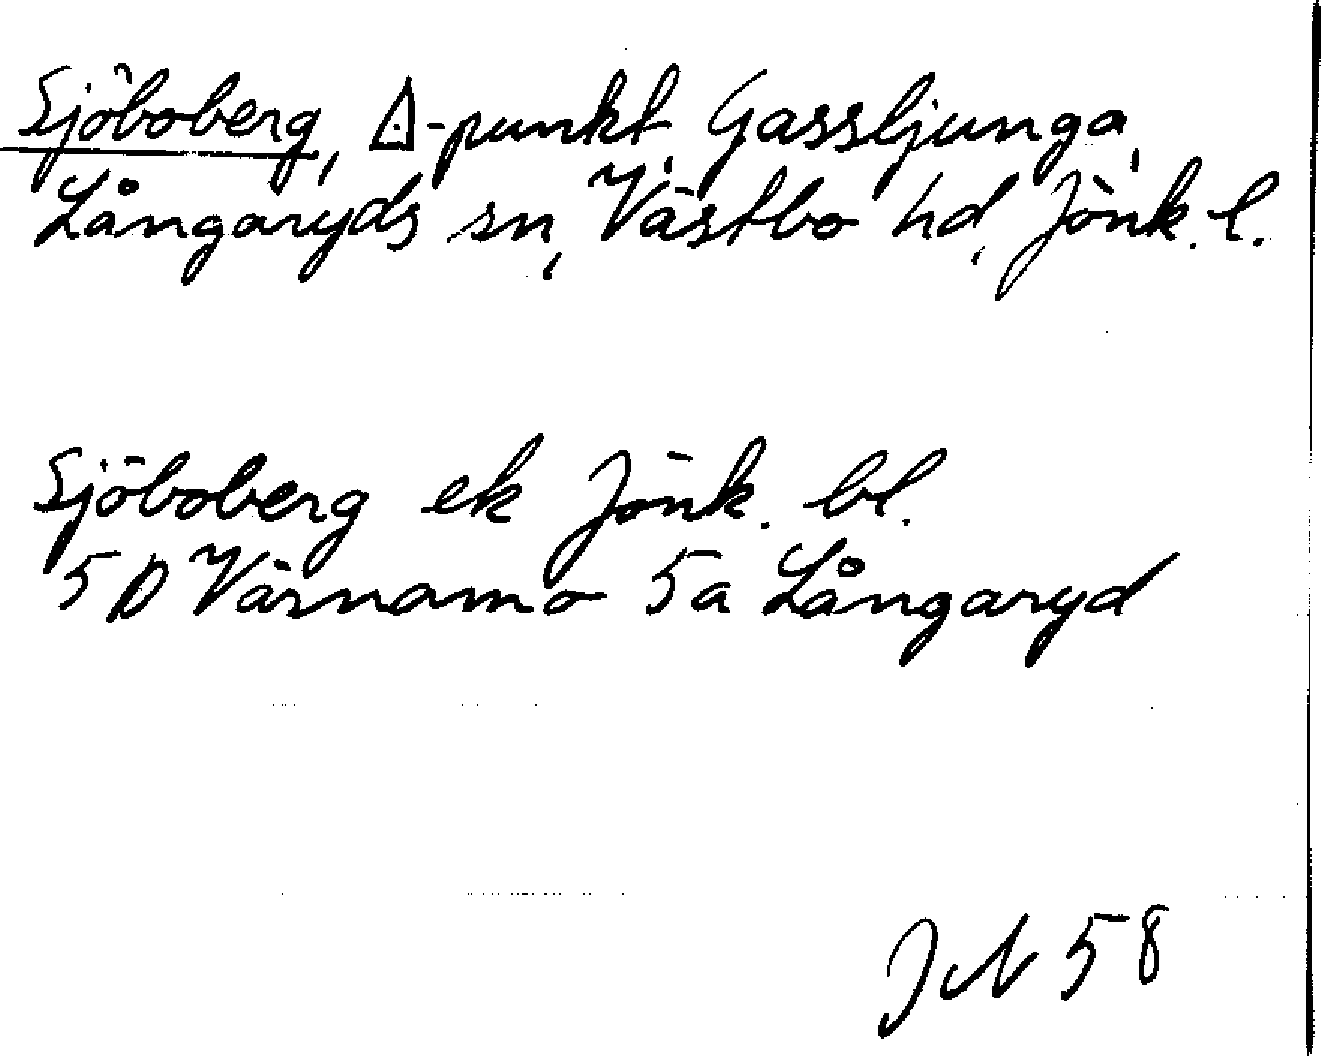 Sjöboberg, △-punkt Gassljunga,
Långaryds sn, Västbo hd, Jönk. l.
Sjöboberg ek Jönk. bl.
5 D Värnamo 5a Långaryd
58